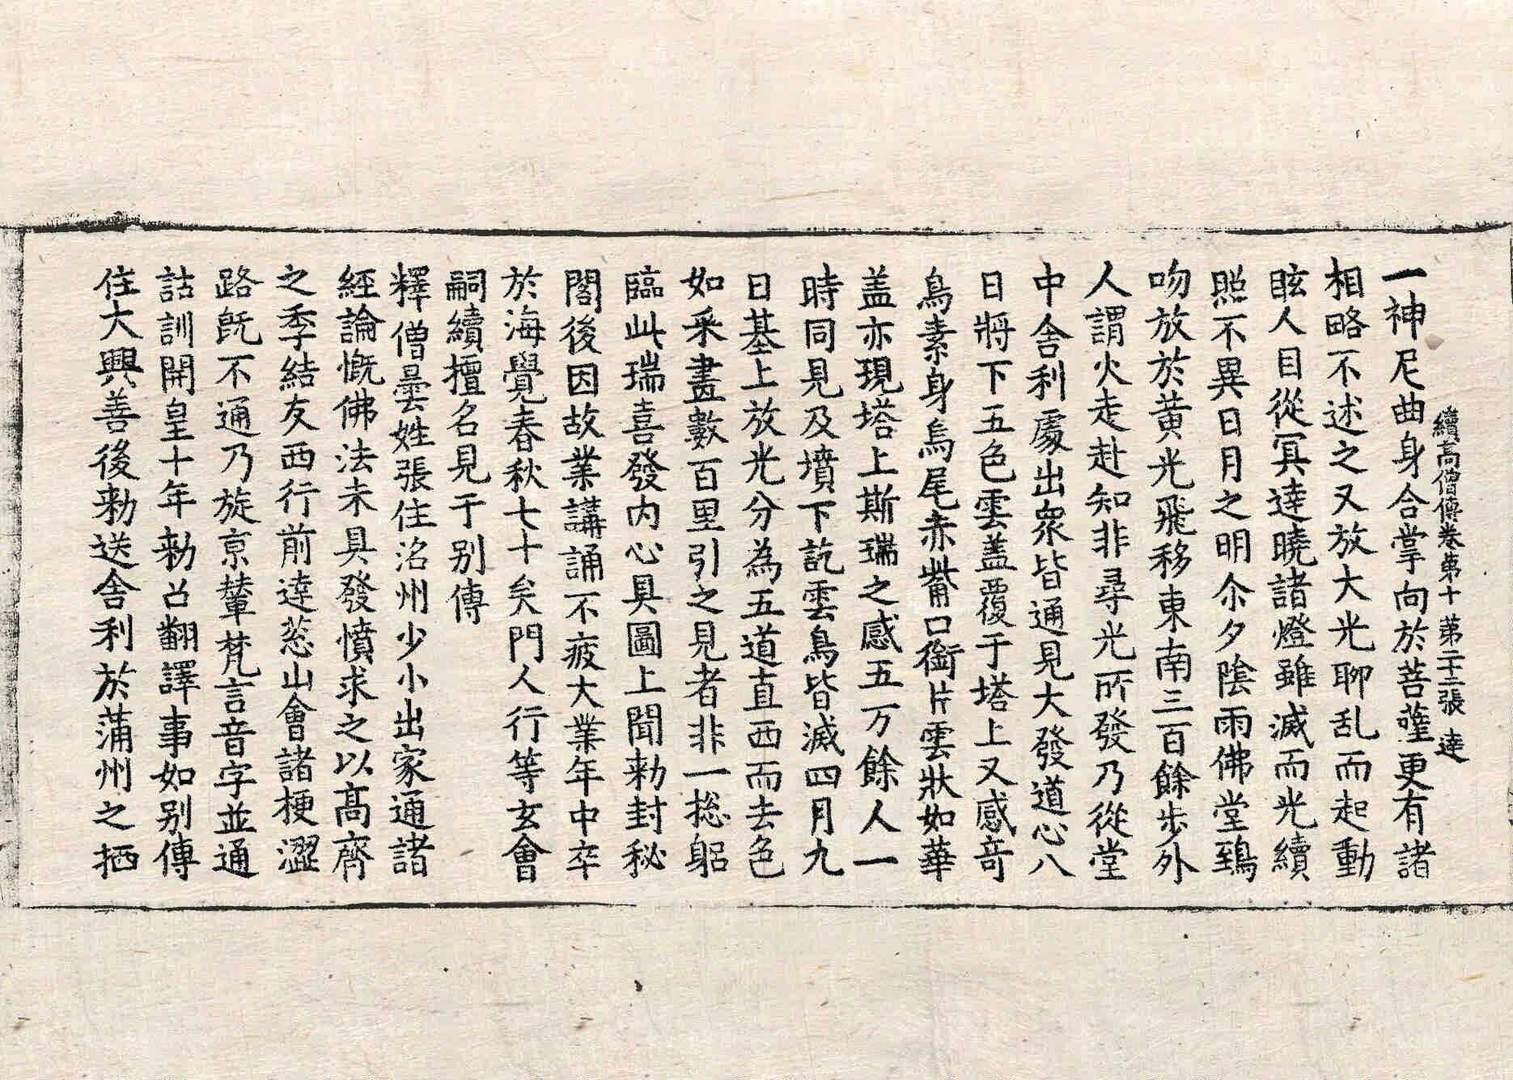 續高僧傳卷第十 第二十三張 達
一神尼曲身合掌向於菩薩更有諸
相略不述之又放大光聊乱而起動
眩人目從冥達曉諸燈雖滅而光續
照不異日月之明尒夕陰雨佛堂鵄
吻放於黄光飛移東南三百餘步外
人謂火走赴知非尋光所發乃從堂
中舎利處出衆皆通見大發道心八
日將下五色雲盖覆于塔上又感竒
鳥素身烏尾赤觜口銜片雲狀如華
盖亦現塔上斯瑞之感五万餘人一
時同見及墳下訖雲鳥皆滅四月九
日基上放光分為五道直西而去色
如采畫數百里引之見者非一揔躬
臨此瑞喜發内心具圖上聞勑封秘
閣後因故業講誦不疲大業年中卒
於海覺春秋七十矣門人行等玄會
嗣續擅名見于别傳
釋僧曇姓張住洺州少小出家通諸
經論慨佛法未具發憤求之以高齊
之季結友西行前達葱山會諸梗澀
路旣不通乃旋京輦梵言音字並通
詁訓開皇十年勑召翻譯事如别傳
住大興善後勑送舎利於蒲州之栖